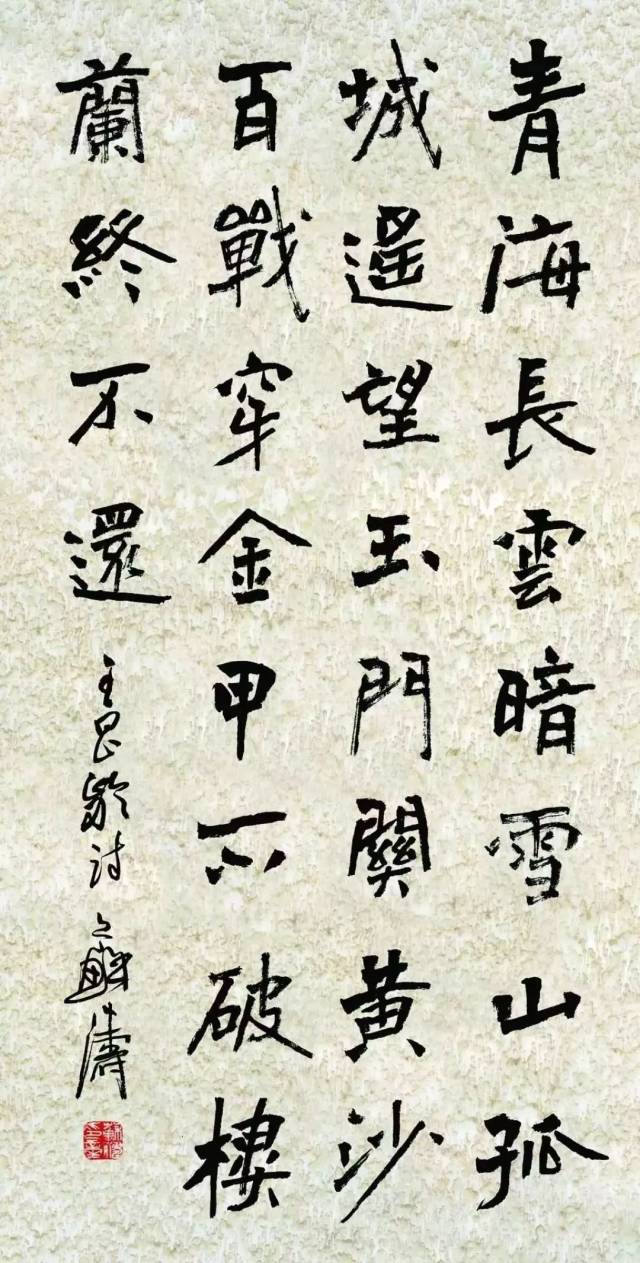 青海長雲暗雪山孤
城遙望玉門關黄沙
百戰穿金甲不破樓
蘭終不還
王昌齡詩 濤